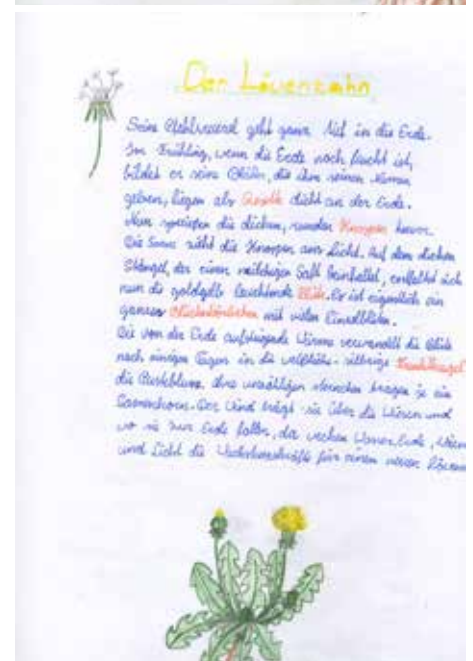 Der Löwenzahn
Seine Pfahlwurzel geht ganz tief in die Erde.
Im Frühling, wenn die Erde noch feucht ist,
bildet er seine Blätter, die ihm seinen Namen
geben, liegen als Rosette dicht an der Erde.
Nun spriesen die dicken, runden Knospen hervor.
Die Sonne zieht die Knospen ans Licht. Auf dem dicken
Stängel, der einen milchigen Saft beinhaltet, entfaltet sich
nun die goldgelb leuchtende Blüte. Er ist eigentlich ein
ganzes mit vielen Einzelblüten.
Die von der Erde aufsteigende Wärme verwandelt die Blüte
nach einigen Tagen in die silbrige
die Pusteblume. Ihre unzähligen tragen je ein
Samenkorn. Der Wind trägt sie über die Wiesen und
wo sie zur Erde fallen, da wecken Wasser, Erde,
und Licht die Wachstumskräfte für einen neuen